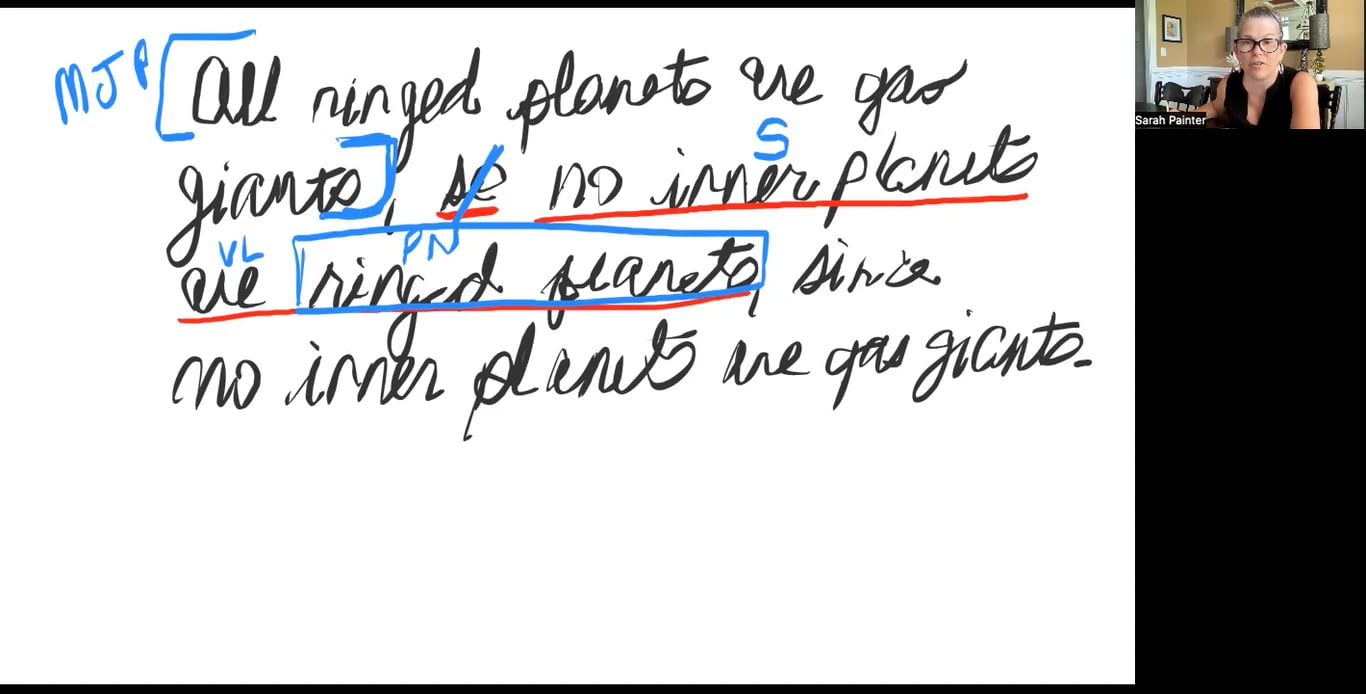 MJP All ringed planets are gas
giants, so no inner planets
S
VL PN
are ringed planets, since
no inner planets are gas giants.
Sarah Painter